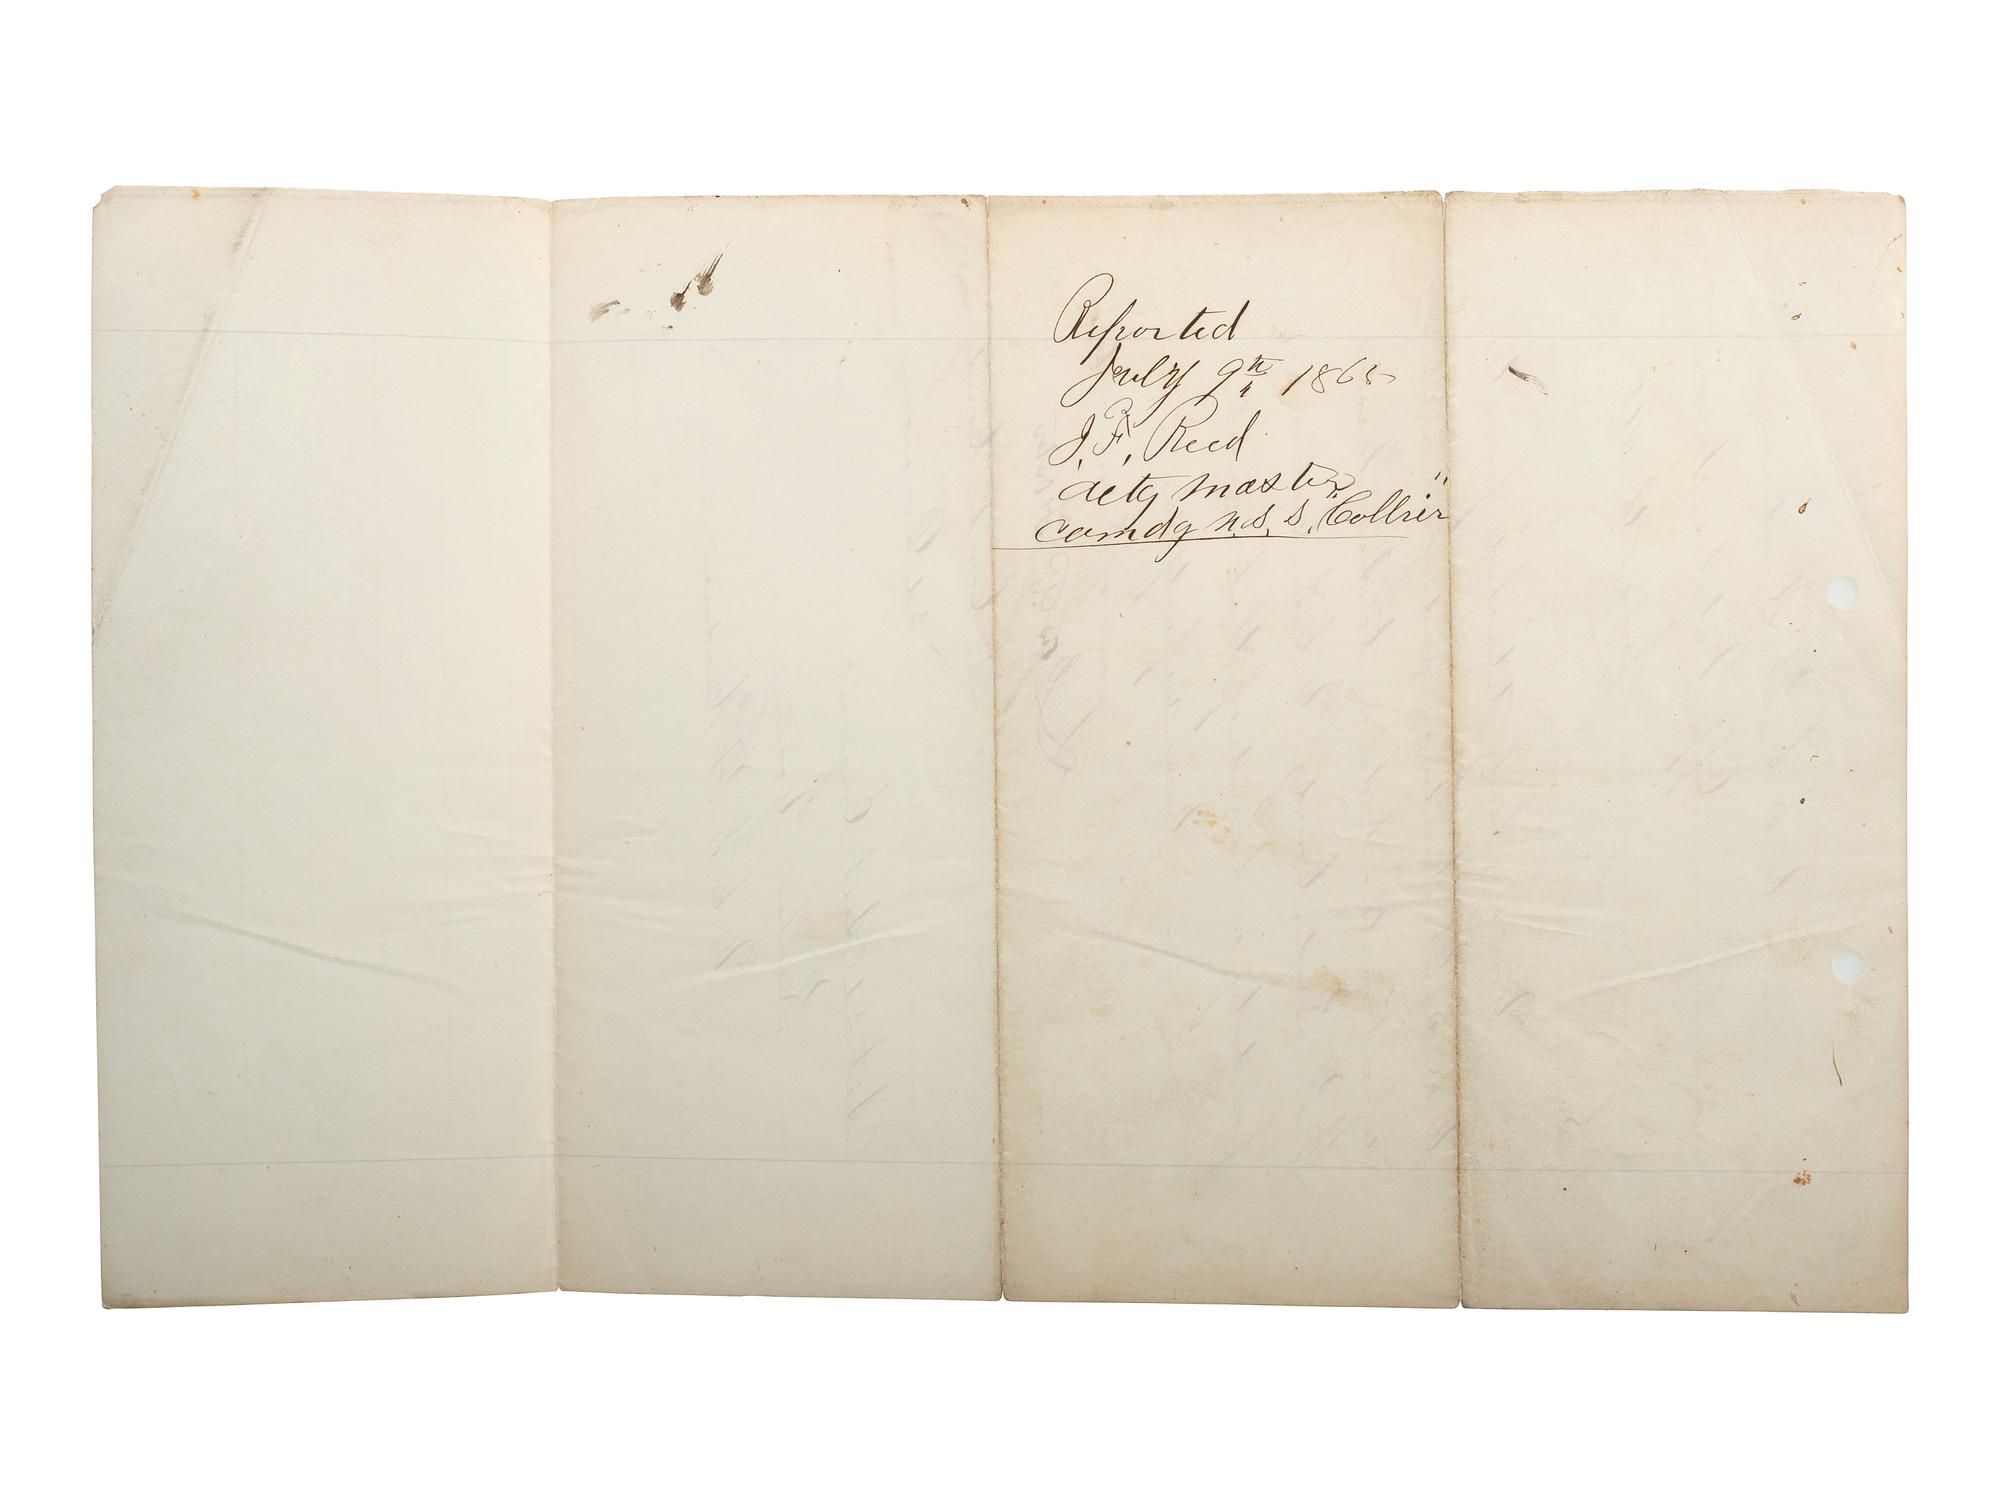 Reported
July 9th 1865
J. F. Reed
actg master
comdg U.S.S. "Collier"